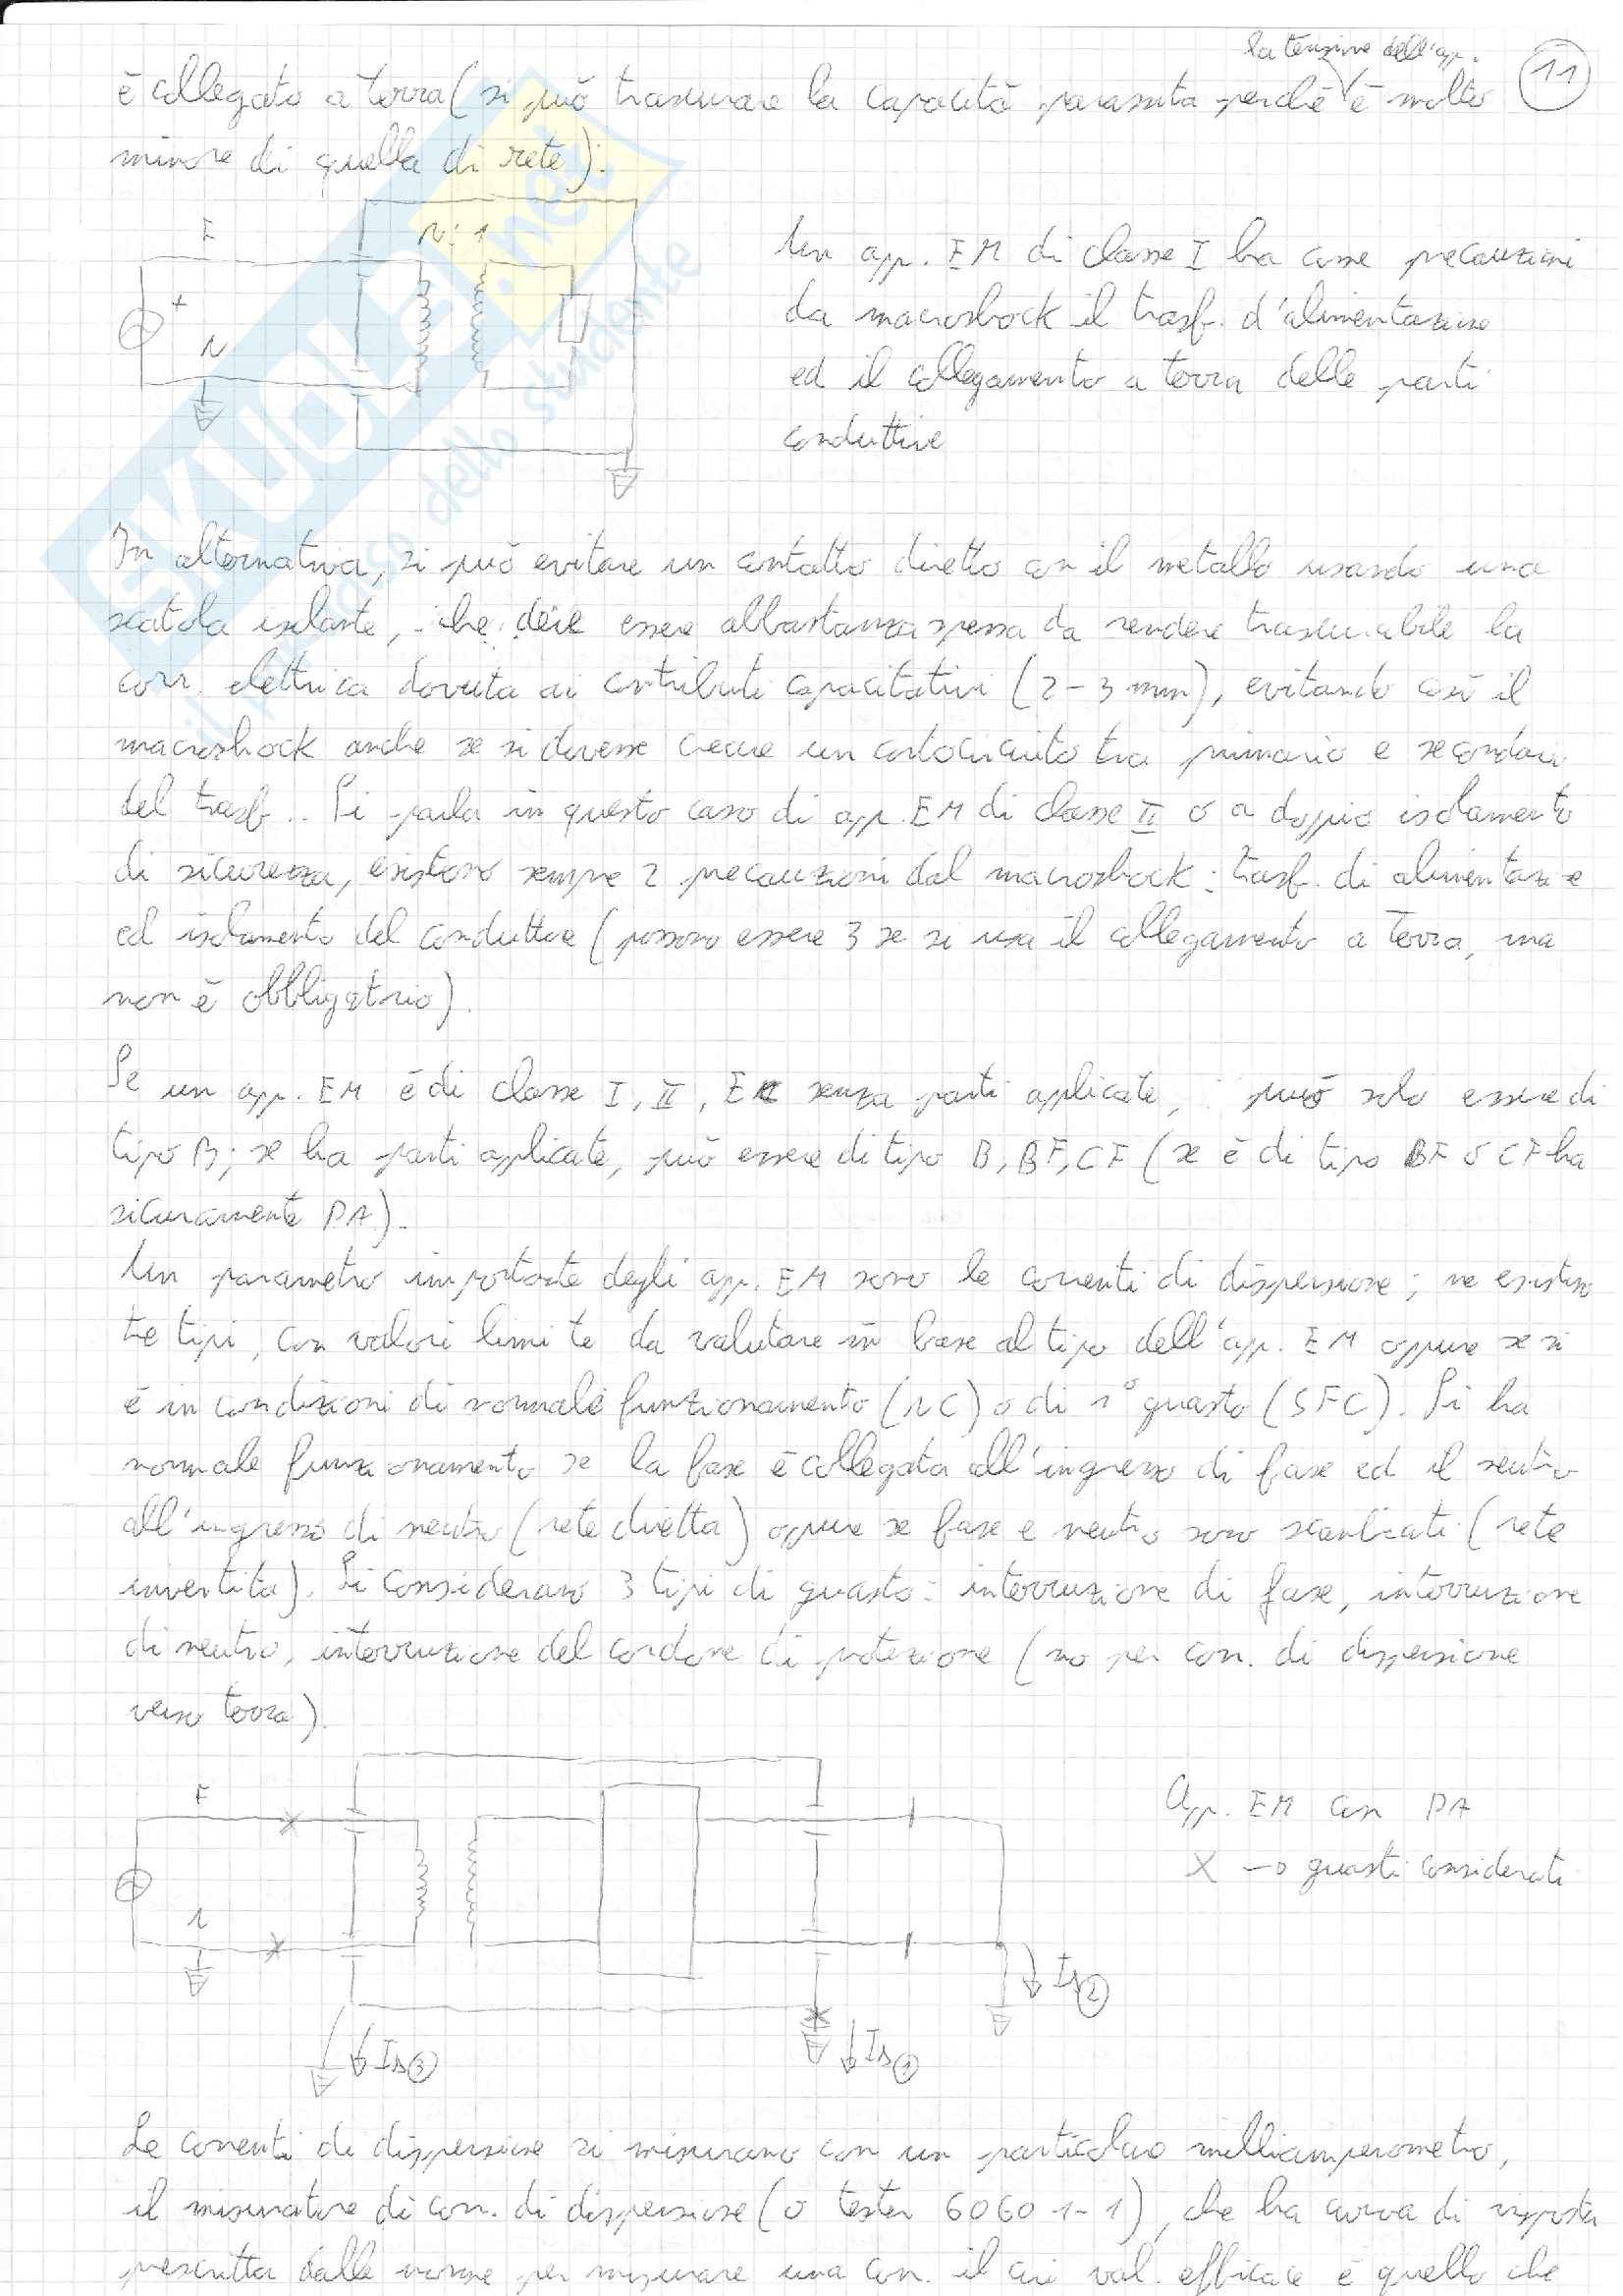 la tensione dell'app.
11
è collegato a terra (si può trascurare la capacità parassita perchè è molto
minore di quella di rete).
F
N:1
+
N
Un app. EM di classe I ha come precauzioni
da macroshock il trasf. d'alimentazione
ed il collegamento a terra delle parti
conduttive
In alternativa, si può evitare un contatto diretto con il metallo usando una
scatola isolante, che deve essere abbastanza spessa da rendere trascurabile la
corr. elettrica dovuta ai contributi capacitativi (2-3 mm), evitando così il
macroshock anche se si dovesse creare un cortocircuito tra primario e secondario
del trasf.. Si parla in questo caso di app. EM di classe II o a doppio isolamento
di sicurezza, esistono sempre 2 precauzioni dal macroshock: trasf. di alimentazione
ed isolamento del conduttore (possono essere 3 se si usa il collegamento a terra, ma
non è obbligatorio).
Se un app. EM è di classe I, II, senza parti applicate, può solo essere di
tipo B; se ha parti applicate, può essere di tipo B, BF, CF (se è di tipo BF o CF ha
sicuramente PA).
Un parametro importante degli app. EM sono le correnti di dispersione; ne esistono
tre tipi, con valori limite da valutare in base al tipo dell'app. EM oppure se si
è in condizioni di normale funzionamento (NC) o di 1° guasto (SFC). Si ha
normale funzionamento se la fase è collegata all'ingresso di fase ed il neutro
all'ingresso di neutro (rete diretta) oppure se fase e neutro sono scambiati (rete
invertita). Si considerano 3 tipi di guasto: interruzione di fase, interruzione
di neutro, interruzione del cordone di protezione (no per corr. di dispersione
verso terra).
F
N
App. EM con PA
X → guasti considerati
Id②
Id③
Id①
Le correnti di dispersione si misurano con un particolare milliamperometro,
il misuratore di corr. di dispersione (o tester 60601-1), che ha curva di risposta
prescritta dalle norme per misurare una corr. il cui val. efficace è quello che
SKUOLA.net
il paradiso dello studente